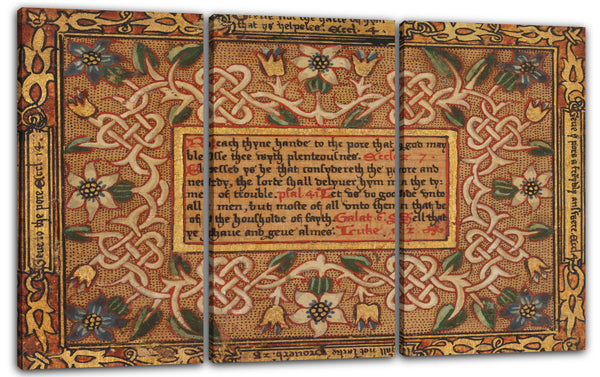 that ys helpeles. Eccl. 4.
Reach thyne hande to the pore that god may
blesse thee wyth plenteousnes. Eccles. 7.
Blessed ys he that consydereth the poore and
nedy, the lorde shall delyuer hym in the ty-
me of trouble. psal. 41. Let vs do good vnto
all men, but moste of all vnto them that be
of the housholde of fayth. Galat. 6. Sell that
ye haue and geue almes. Luke. 12.
to the pore Eccl. 4.
shall not lacke Prouerb. 28